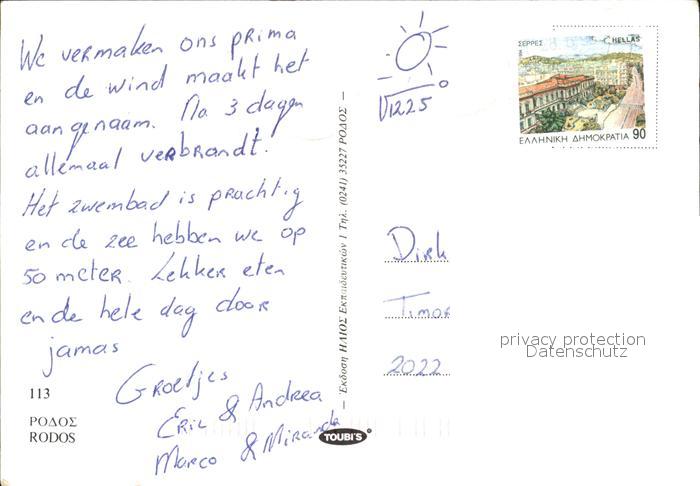 We vermaken ons prima
en de wind maakt het
aangenaam. Na 3 dagen
allemaal verbrandt.
Het zwembad is prachtig
en de zee hebben we op
50 meter. Lekker eten
en de hele dag door
jamas
Groetjes
Eric & Andrea
Marco & Miranda
113
ΡΟΔΟΣ
RODOS
Έκδοση ΗΛΙΟΣ Εκπαιδευτικών 1 Τηλ. (0241) 35227 ΡΟΔΟΣ
TOUBI'S
ΣΕΡΡΕΣ
HELLAS
ΕΛΛΗΝΙΚΗ ΔΗΜΟΚΡΑΤΙΑ 90
Dirk
Timor
2022
privacy protection
Datenschutz